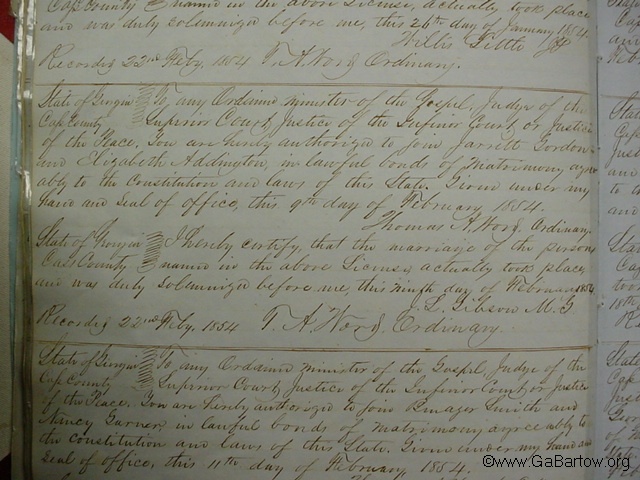 Cass County named in the above License, actually took place
and was duly solemnized before me, this 26th day of January 1854.
Willis Tittle JP
Recorded 22nd Feby. 1854 T. A. Word Ordinary.
State of Georgia To any Ordained minister of the Gospel, Judge of the
Cass County Superior Court, Justice of the Inferior Court, or Justice
of the Peace. You are hereby authorized to Join Jarrett Gordon
and Elizabeth Addington, in lawful bonds of Matrimony, agree
ably to the Constitution and laws of this State. Given under my
hand and seal of office, this 9th day of February 1854.
Thomas A. Word, Ordinary.
State of Georgia I hereby certify, that the marriage of the persons
Cass County named in the above License, actually took place,
and was duly solemnized before me, this ninth day of February 1854
J. L. Gibson M. G.
Recorded 22nd Feby. 1854 T. A. Word, Ordinary
State of Georgia To any Ordained minister of the Gospel, Judge of the
Cass County Superior Court, Justice of the Inferior Court, or Justice
of the Peace. You are hereby authorized to Join Smith and
Nancy Garner, in lawful bonds of matrimony agreeably to
the Constitution and laws of this State. Given under my hand and
seal of office, this 11th day of February, 1854.
©www.GaBartow.org